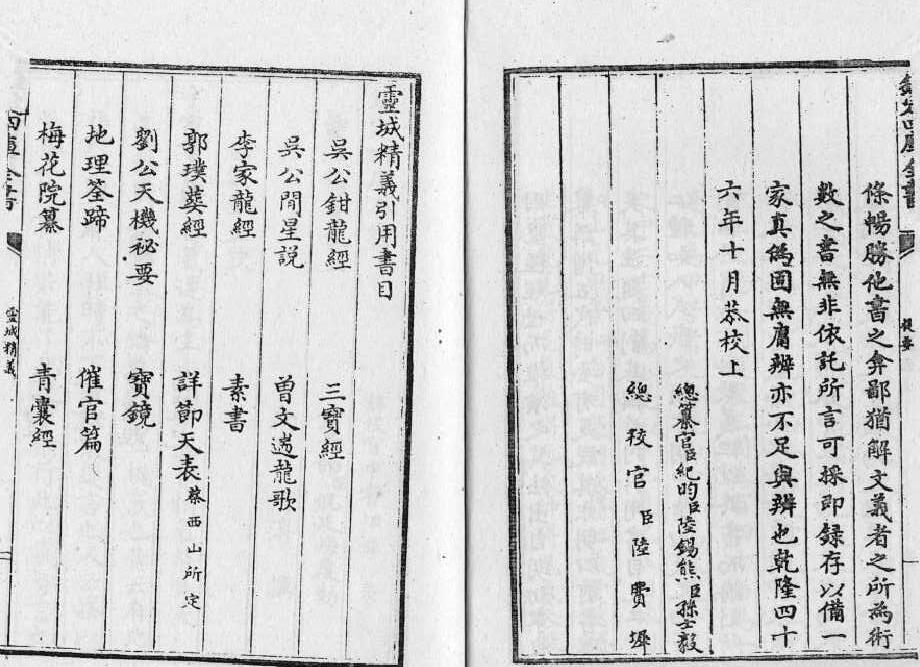 欽定四庫全書
提要
條暢勝他書之弇鄙猶解文義者之所為術
數之書無非依託所言可採即録存以備一
家真偽固無庸辨亦不足與辨也乾隆四十
六年十月恭校上
總纂官臣紀昀臣陸錫熊臣孫士毅
總校官臣陸費墀
靈城精義引用書目
吳公鉗龍經 三寶經
吳公問星説 曾文遄龍歌
李家龍經 素書
郭璞葬經 詳節天表蔡西山所定
劉公天機祕要 寶鏡
地理筌蹄 催官篇
梅花院纂 青囊經
四庫全書
靈城精義